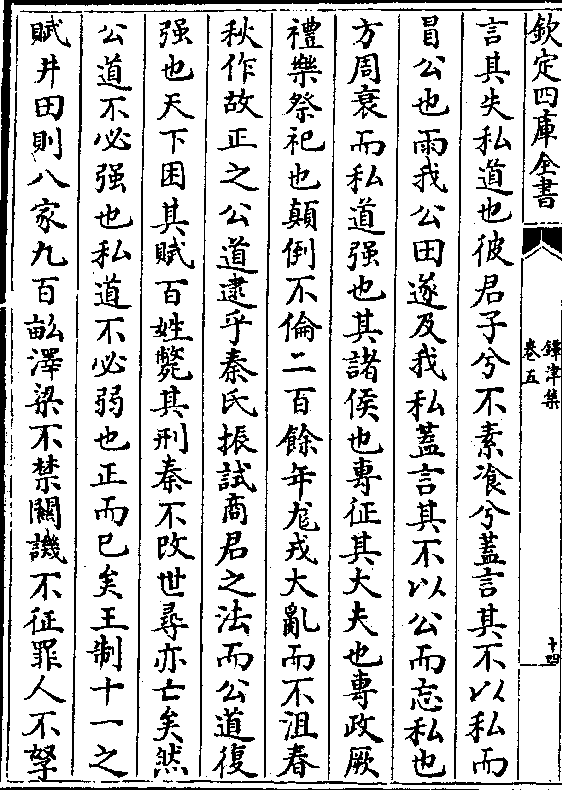 欽定四庫全書
鐔津集
卷五
十四
言其失私道也彼君子兮不素飡兮蓋言其不以私而
冒公也雨我公田遂及我私蓋言其不以公而忘私也
方周衰而私道强也其諸侯也專征其大夫也專政厥
禮樂祭祀也顛倒不倫二百餘年尨戎大亂而不沮春
秋作故正之公道逮乎秦氏振試商君之法而公道復
强也天下困其賦百姓斃其刑秦不改世尋亦亡矣然
公道不必强也私道不必弱也正而已矣王制十一之
賦井田則八家九百畝澤梁不禁關譏不征罪人不孥